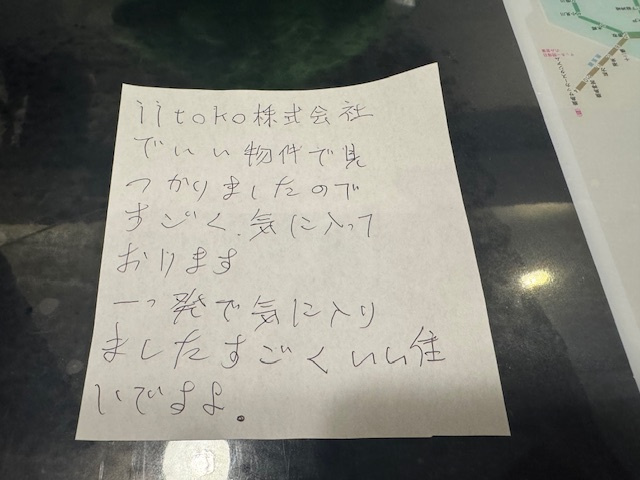 iitoko株式会社
でいい物件で見
つかりましたので
すごく、気に入って
おります
一っ発で気に入り
ましたすごくいい住
いですよ。